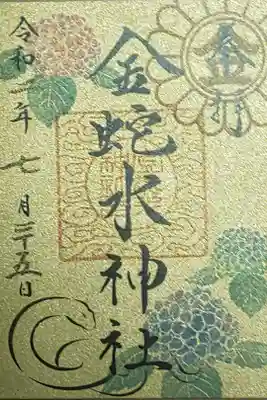 金
金蛇水神社
令和二年七月二十五日